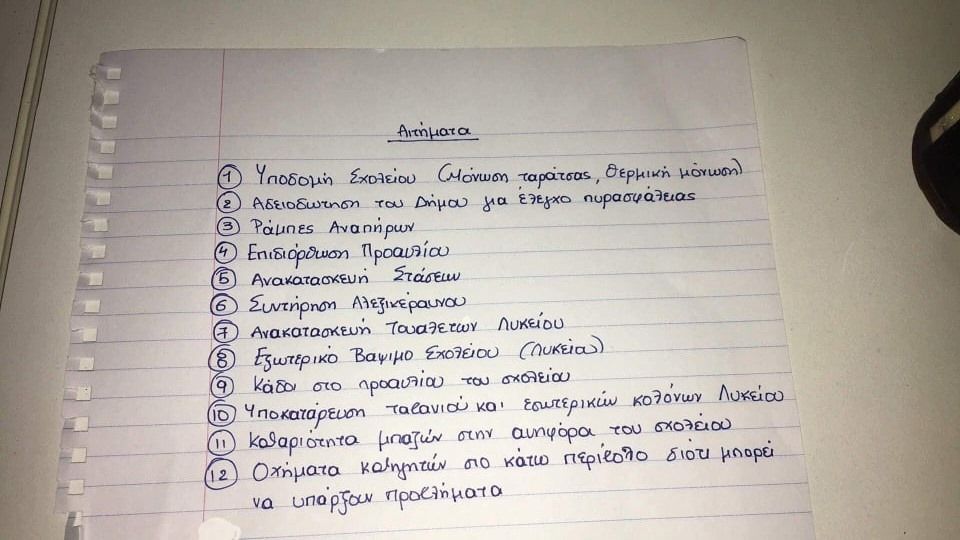 Αιτήματα
1 Υποδομή Σχολείου (Μόνωση ταράτσας, Θερμική μόνωση)
2 Αδειοδωτηση του Δήμου για έλεγχο πυρασφάλειας
3 Ράμπες Αναπήρων
4 Επιδιόρθωση Προαυλίου
5 Ανακατασκευή Στάσεων
6 Συντήρηση Αλεξικέραυνου
7 Ανακατασκευή Τουαλετων Λυκείου
8 Εξωτερικό Βαψιμο Σχολείου (Λυκεία)
9 Κάδοι στο προαυλίου του σχολείου
10 Υποκατάρευση ταβανιού και εσωτερικών κολόνων Λυκείου
11 Καθαριότητα μπαζών στην ανηφόρα του σχολείου
12 Οχήματα καθηγητών στο κάτω περίβολο διότι μπορεί
να υπάρξουν προβλήματα